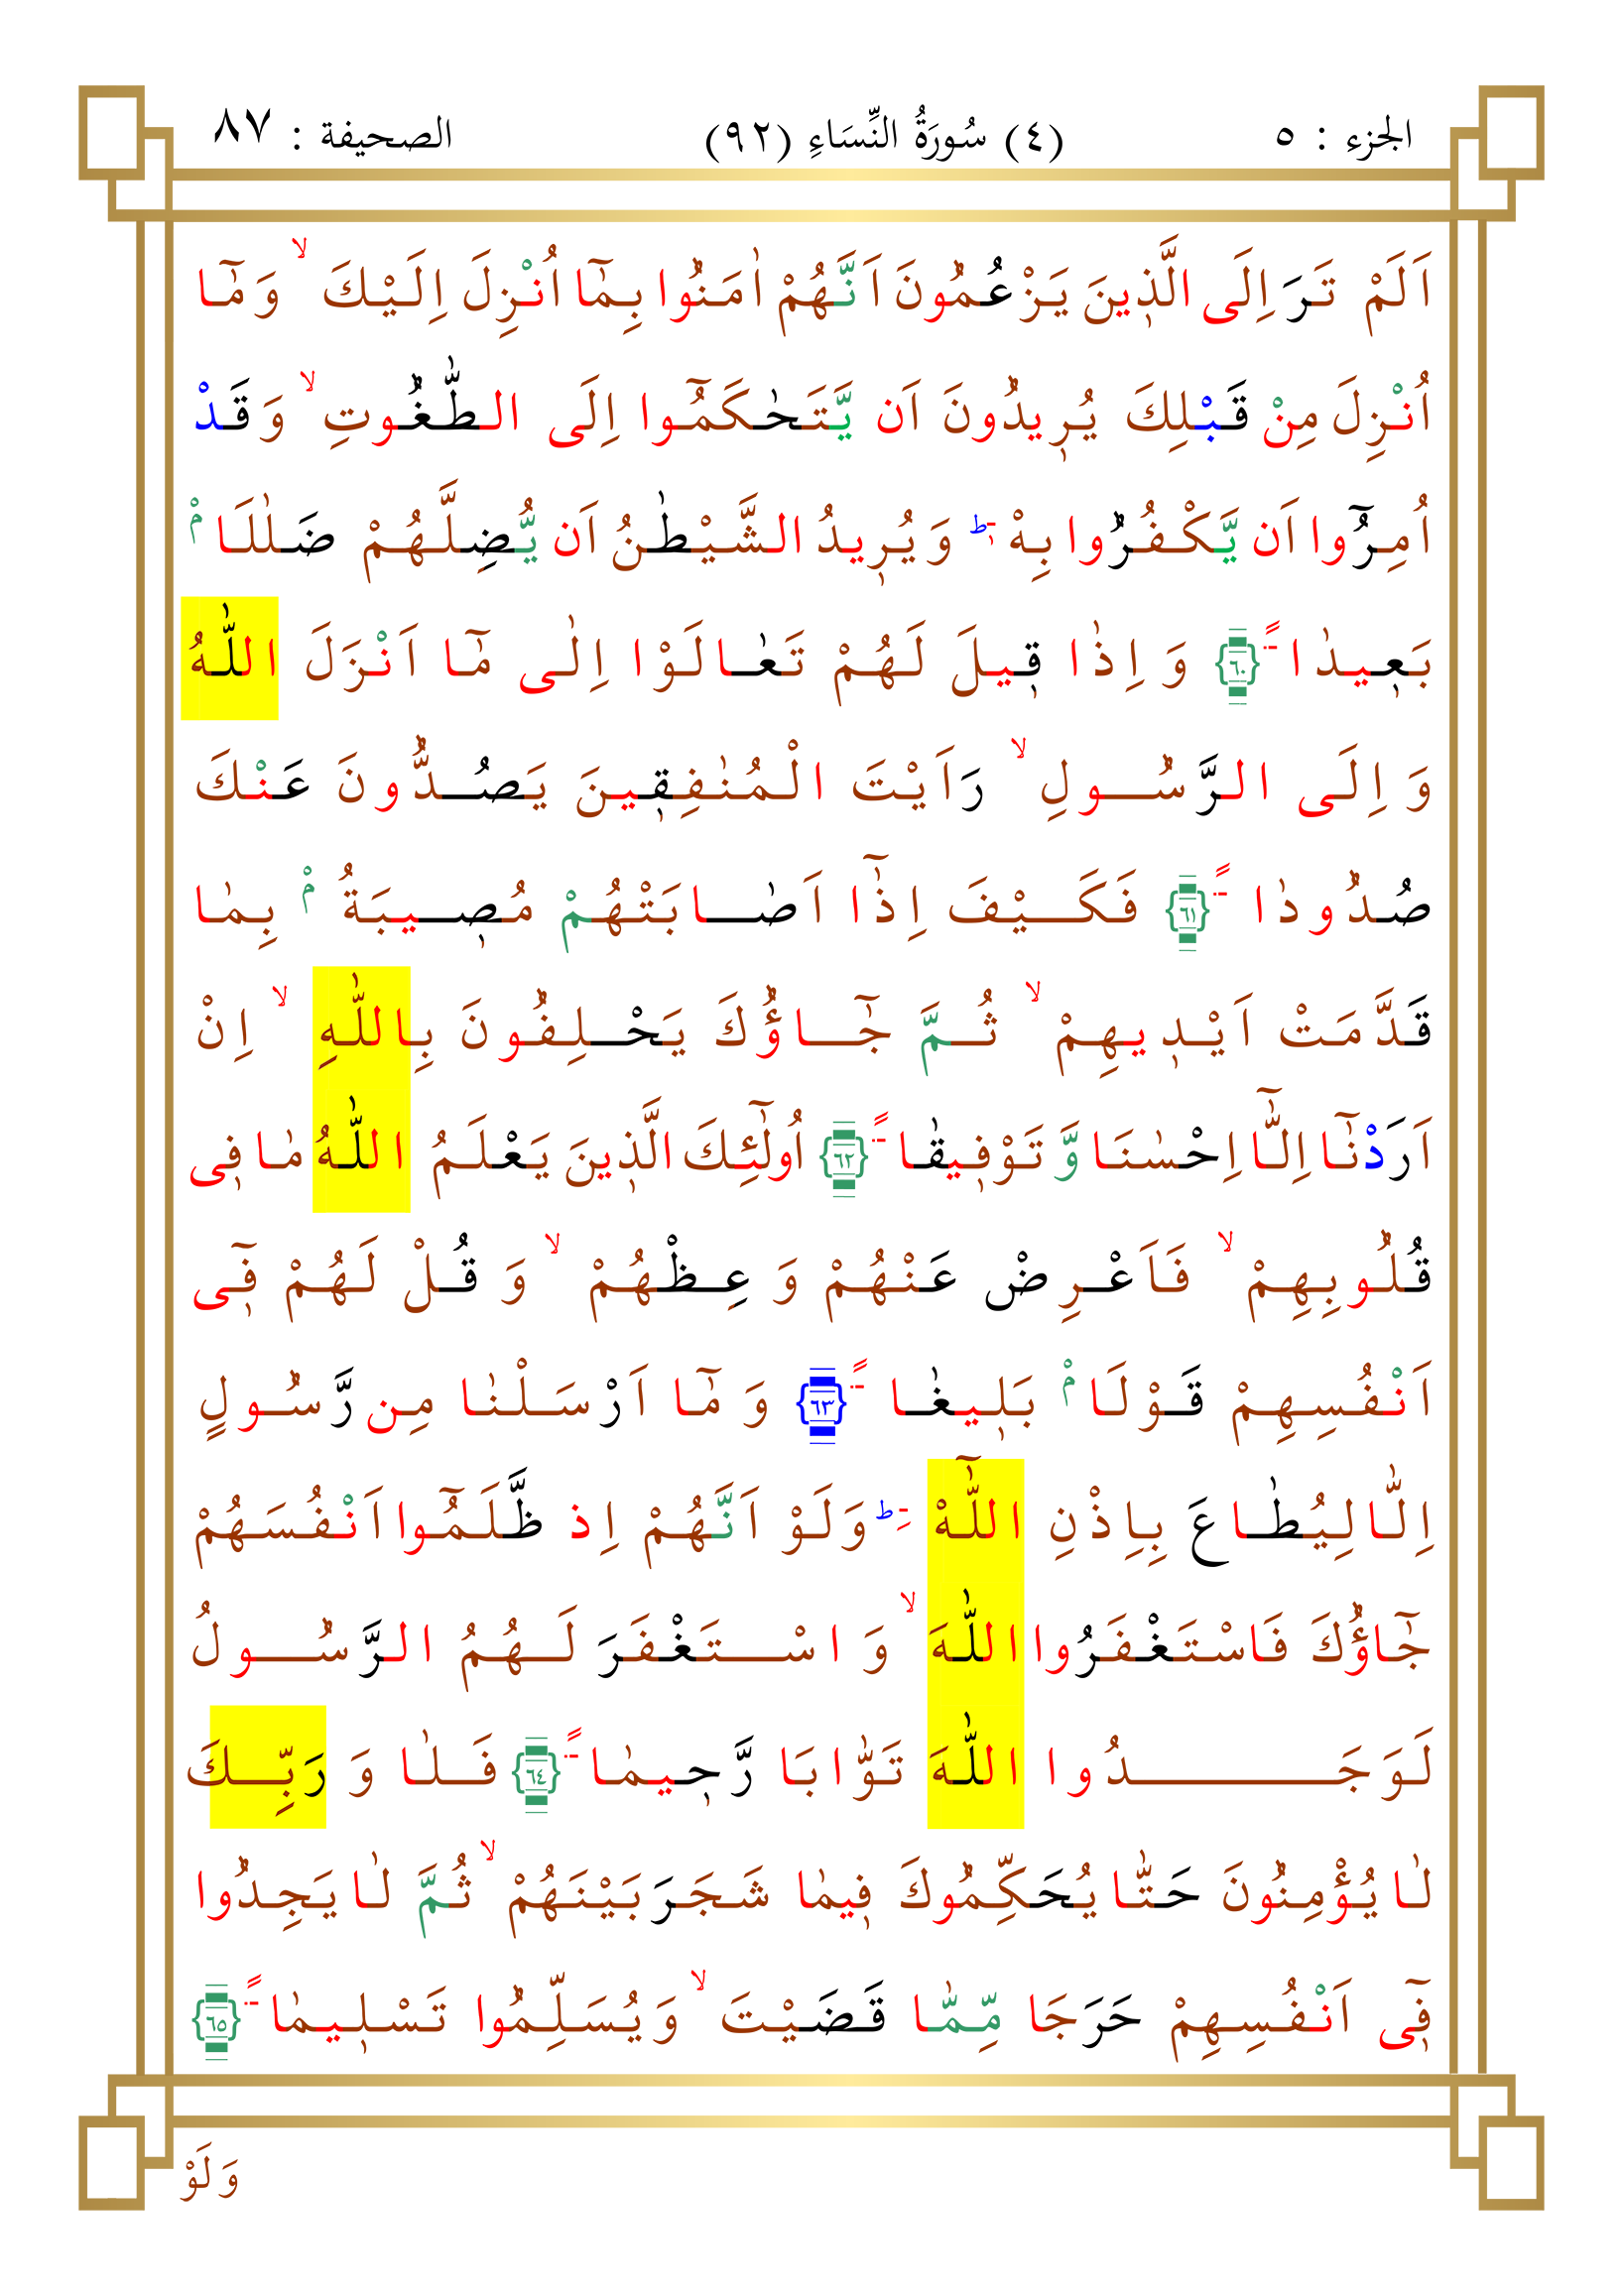 الجزء : ٥ (٤) سُورَةُ النِّسَاءِ (٩٢) الصحيفة : ٨٧
اَلَمْ تَرَ اِلَى الَّذ۪ينَ يَزْعُمُونَ اَنَّهُمْ اٰمَنُوا بِمَٓا اُنْزِلَ اِلَيْكَ ۙ وَمَٓا
اُنْزِلَ مِنْ قَبْلِكَ يُر۪يدُونَ اَن يَّتَحٰكَمُٓوا اِلَى الطّٰغُوتِ ۙ وَقَدْ
اُمِرُٓوا اَن يَّكْفُرُوا بِهْ ۜ وَيُر۪يدُ الشَّيْطٰنُ اَن يُّضِلَّهُمْ ضَلٰلَا ۢ
بَع۪يدٰا ﴿٦٠﴾ وَ اِذٰا ق۪يلَ لَهُمْ تَعٰالَوْا اِلٰى مَٓا اَنْزَلَ اللّٰهُ
وَ اِلَى الرَّسُولِ ۙ رَاَيْتَ الْمُنٰفِق۪ينَ يَصُدُّونَ عَنْكَ
صُدُودٰا ﴿٦١﴾ فَكَيْفَ اِذَٓا اَصٰابَتْهُمْ مُص۪يبَةُ ۢ بِمٰا
قَدَّمَتْ اَيْد۪يهِمْ ۙ ثُمَّ جَٓاؤُكَ يَحْلِفُونَ بِاللّٰهِ ۙ اِنْ
اَرَدْنَٓا اِلَّٓا اِحْسٰنَا وَّ تَوْف۪يقٰا ﴿٦٢﴾ اُولٰٓئِكَ الَّذ۪ينَ يَعْلَمُ اللّٰهُ مٰا ف۪ى
قُلُوبِهِمْ ۙ فَاَعْرِضْ عَنْهُمْ وَ عِظْهُمْ ۙ وَ قُلْ لَهُمْ ف۪ٓى
اَنْفُسِهِمْ قَوْلَا ۢ بَل۪يغٰا ﴿٦٣﴾ وَ مَٓا اَرْسَلْنٰا مِن رَّسُولٍ
اِلّٰا لِيُطٰاعَ بِاِذْنِ اللّٰهْ ۜ وَلَوْ اَنَّهُمْ اِذ ظَّلَمُٓوا اَنْفُسَهُمْ
جَٓاؤُكَ فَاسْتَغْفَرُوا اللّٰهَ ۙ وَ اسْتَغْفَرَ لَهُمُ الرَّسُولُ
لَوَجَدُوا اللّٰهَ تَوّٰابَا رَّح۪يمٰا ﴿٦٤﴾ فَلٰا وَ رَبِّكَ
لٰا يُؤْمِنُونَ حَتّٰا يُحَكِّمُوكَ ف۪يمٰا شَجَرَ بَيْنَهُمْ ۙ ثُمَّ لٰا يَجِدُوا
ف۪ٓى اَنْفُسِهِمْ حَرَجَا مِّمّٰا قَضَيْتَ ۙ وَيُسَلِّمُوا تَسْل۪يمٰا ﴿٦٥﴾
وَلَوْ